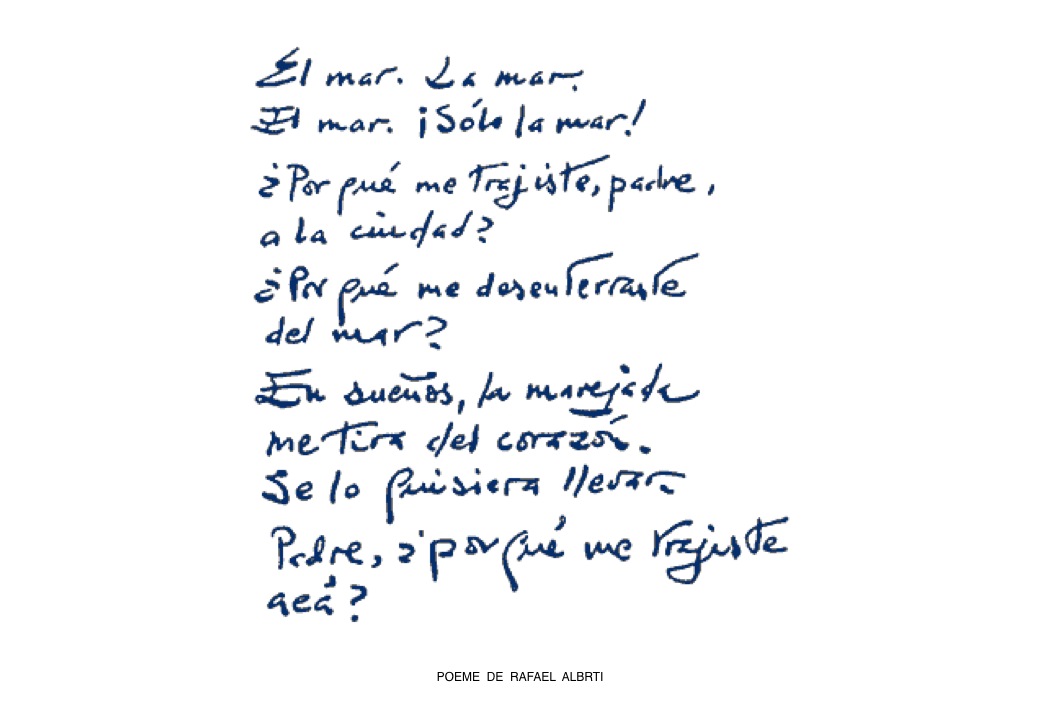 El mar. La mar.
El mar. ¡Sólo la mar!
¿Por qué me trajiste, padre,
a la ciudad?
¿Por qué me desenterraste
del mar?
En sueños, la marejada
me tira del corazón.
Se lo quisiera llevar.
Padre, ¿por qué me trajiste
acá?
POEME DE RAFAEL ALBRTI